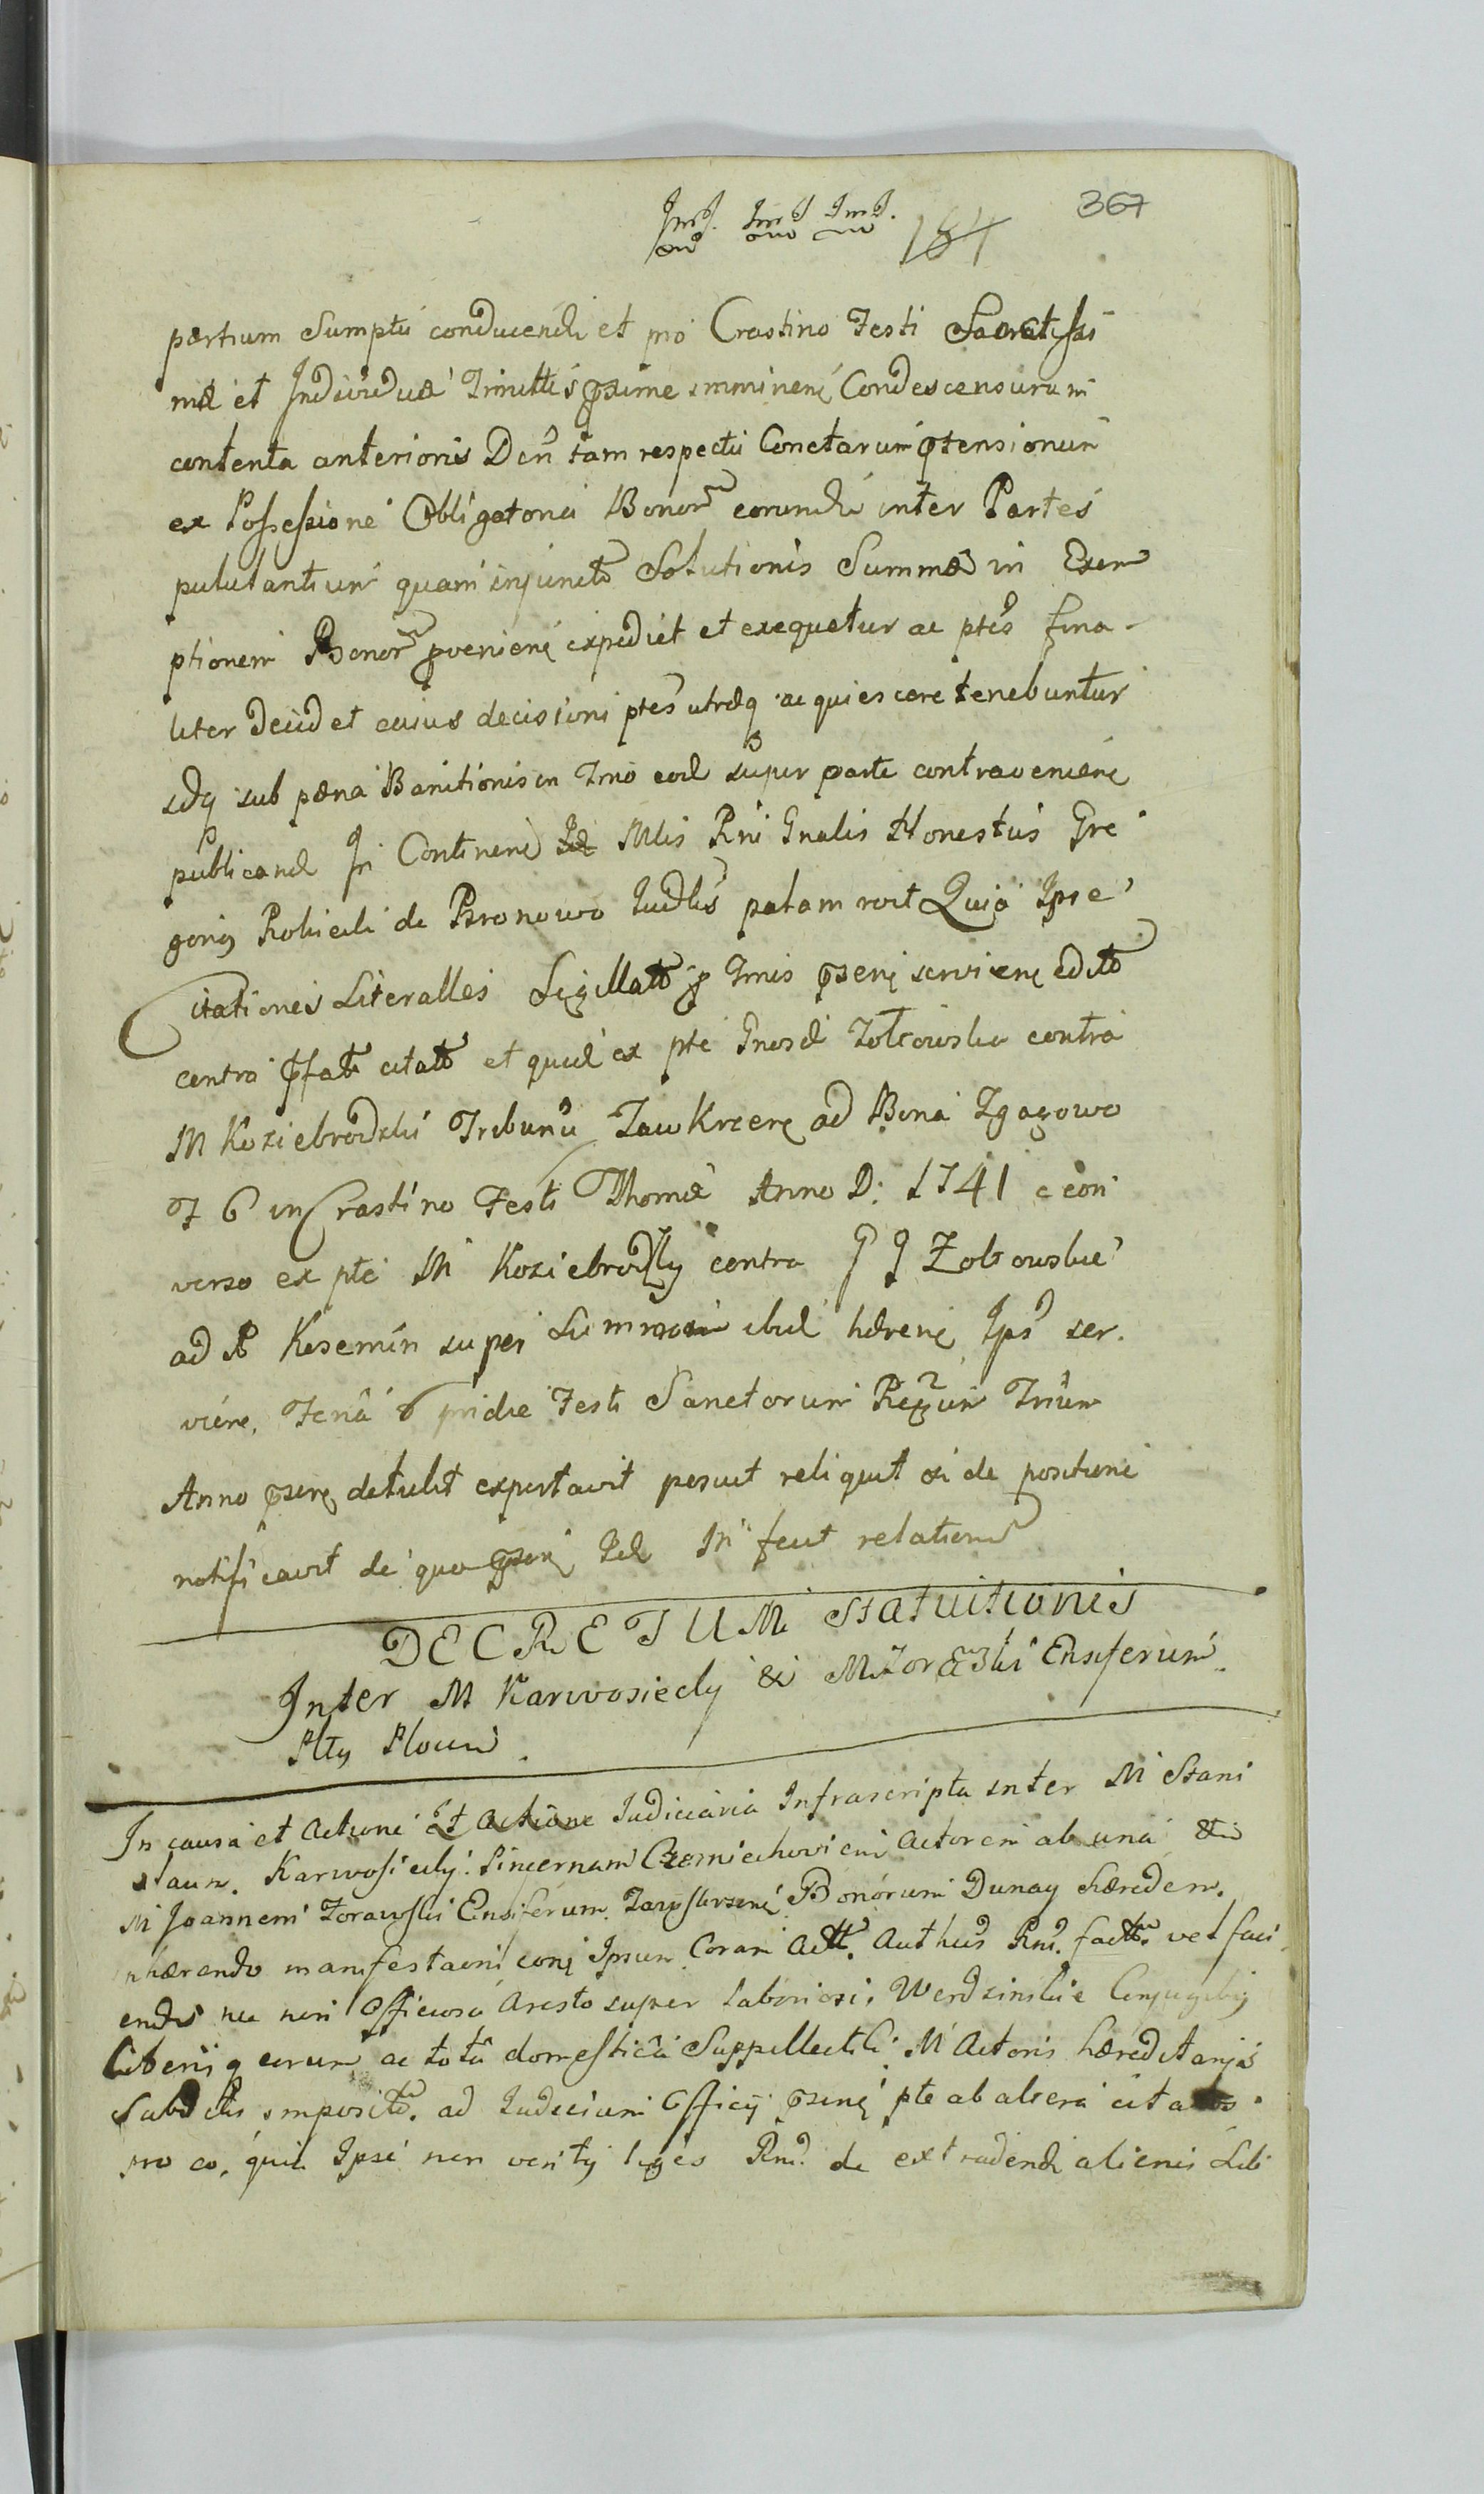 367
184
partium Sumptu conducendi et pro Crastino Festi Sacratissi
mæ et Individuæ Trinittis pxime imminen Condescensurum
contenta anterioris Decri tam respectu Conctarum ptensionum
ex Possessione Obligatoria Bonor eorundi inter Partes
pullulantium quam injuncto Solutionis Summæ in Exem
ptionem Bonor pvenien expediet et exequetur ac ptes fina
liter decidet cuius decisioni ptes utræq acquiescere tenebuntur
idq sub pæna Banitionis in Tmo eod super parte contravenien
publicand In Continen Mlis Rni Gnalis Honestus Gre
gorig de Bronowo Iudlis palam roit Quia Ipse
Citationes Literalles Sigillatt p Tmis psen servien editt
contra pfatt citatt et quid ex pte Gnosd Zoltowskie contra
M Koziebrodzki Tribunu Zawkrcen ad Bona Zgagowo
F 6 in Crastino Festi Thomæ Anno D: 1741 e con
verso ex pte M Koziebrodzky contra G G Zoltowskie
ad B Kosemin super Summam ibid hæren Ips ser.
viene. Feria 6 pridie Festi Sanctorum Regum Trium
Anno psen detulit exportavit posuit reliquit ei de positione
notificavit de quo psen Id M fecit relationem
DECRETUM Statuitionis
Inter M Karwosiecky & M Zorawski Ensiferum
Plocen.
In causa et Actione Et Actione Iudiciaria Infrascripta inter M Stani
slaum. Karwosiecky. Pincernam Czerniechovien Actorem ab una &
M Joannem Zorawski Ensiferum. Bonorum Dunay Hæredem.
inhærendo manifestaoni con Ipsum Coram Actt. Authus Rni. factt. vel faci
endo nec non Officioso Aresto super laboriosi. Werdzinskie Conjugibg
Liberisq eorum ac tota domestica Suppellectili M Actoris hæreditarijs
Subditis imposito. ad Iudicium Officij psen pte ab altera citatos.
pro eo, quia Ipse non veritg leges Rni. de extradendi alienis